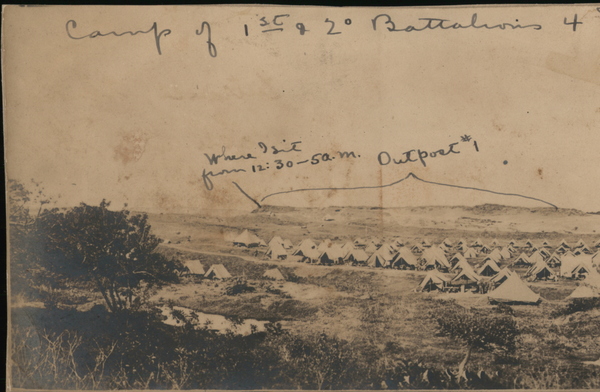 Camp of 1st & 2º Battalions 4
Where I sit
from 12:30-5 a.m.
Outpost #1